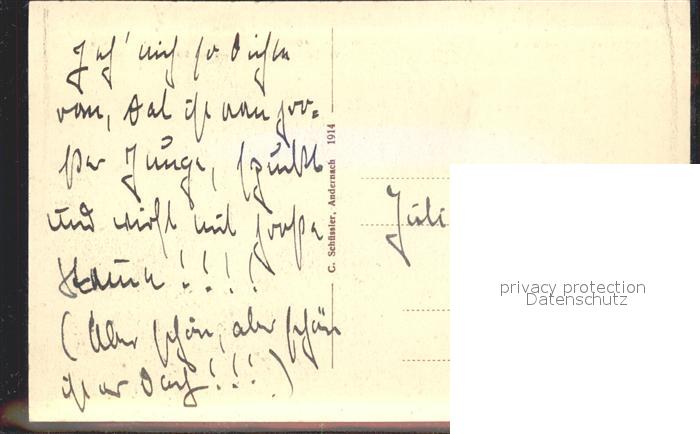 sich so
von, das ist ein gro-
ßer Junge, spuckt
und wirft mit große
Steine!!!!
(Aber schön, aber schön
ist er doch!!!)
C. Schüssler, Andernach 1914
Juli
privacy protection
Datenschutz